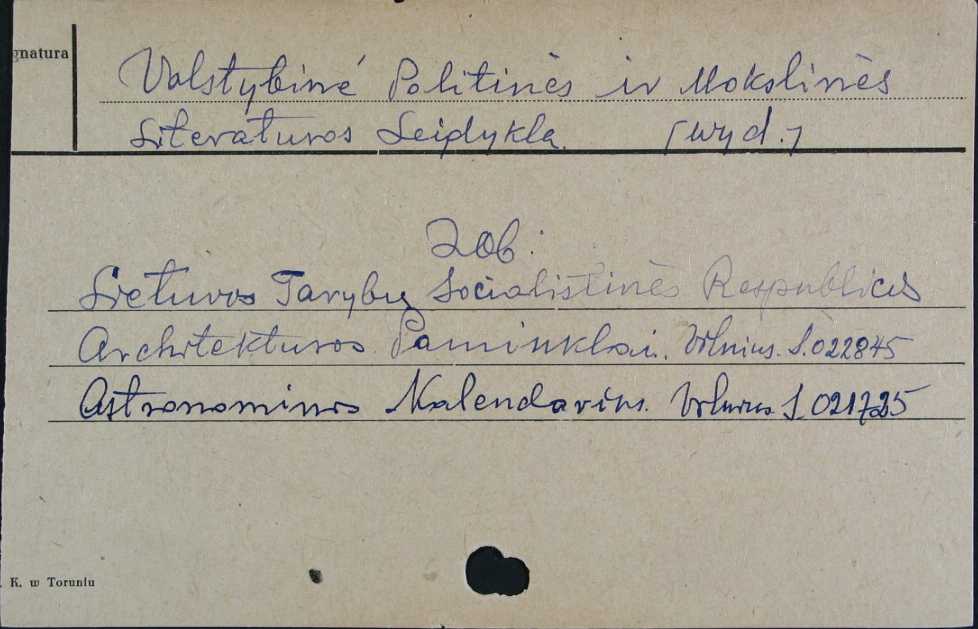 gnatura
Valstybinė Politinės ir Mokslinės
Literaturos Leidykla. [wyd.]
Zob:
Lietuvos Tarybų Socialistinės Respublicos
Architekturos Paminklai. Vilnius. S.022845
Astronominis Kalendorius. Vilnius S.021725
K. w Toruniu